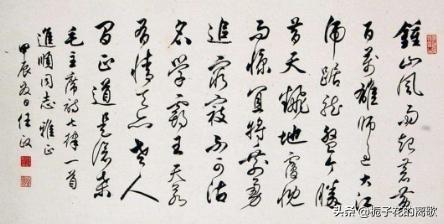 鍾山風雨起蒼黃
百萬雄師過大江
虎踞龍盤今勝
昔天翻地覆慨
而慷宜將剩勇
追窮寇不可沽
名學霸王天若
有情天亦老人
間正道是滄桑
毛主席詩七律一首
進順同志雅正
甲辰日任政
头条 @栀子花的离歌